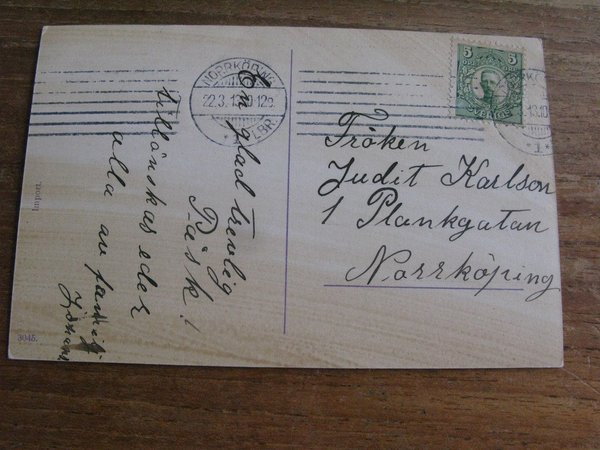 En glad trevlig
Påsk!
tillönskas eder
alla av familj
Fröken
Judit Karlson
1 Plankgatan
Norrköping
NORRKÖPING
22.3.13.10-12e.
LBR
5 5
SVERIGE
13.10
1
Import.
3045.